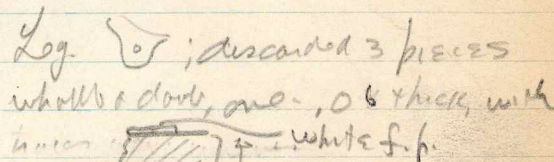 Log. ; discarded 3 pieces
wattle & daub, one , 06 thick, with
white f.p.